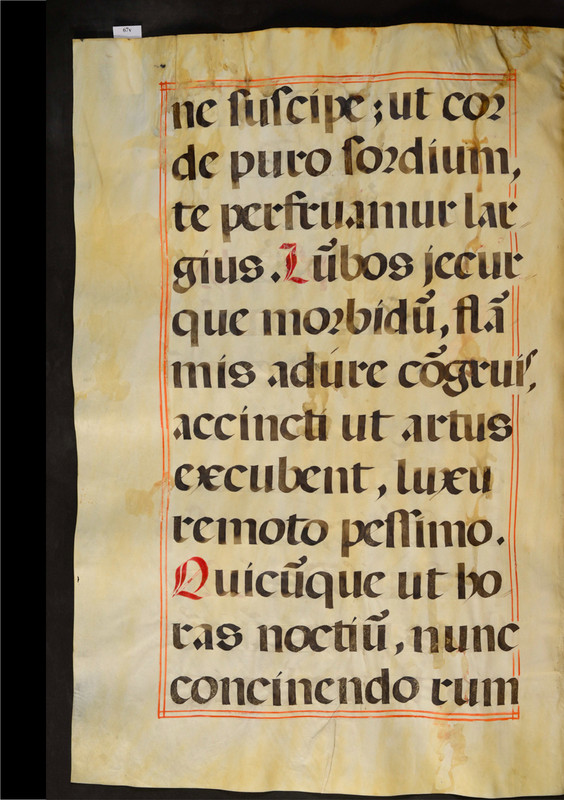 67v
ne ſuſcipe; ut coꝛ
de puro ſoꝛdium,
te perfruamur lar
gius. Lũbos jecur
que moꝛbidũ, flã
mis adure cõgruiſ,
accincti ut artus
excubent, luxu
remoto peſſimo.
Quicũque ut ho
ras noctiũ, nunc
concinendo rum